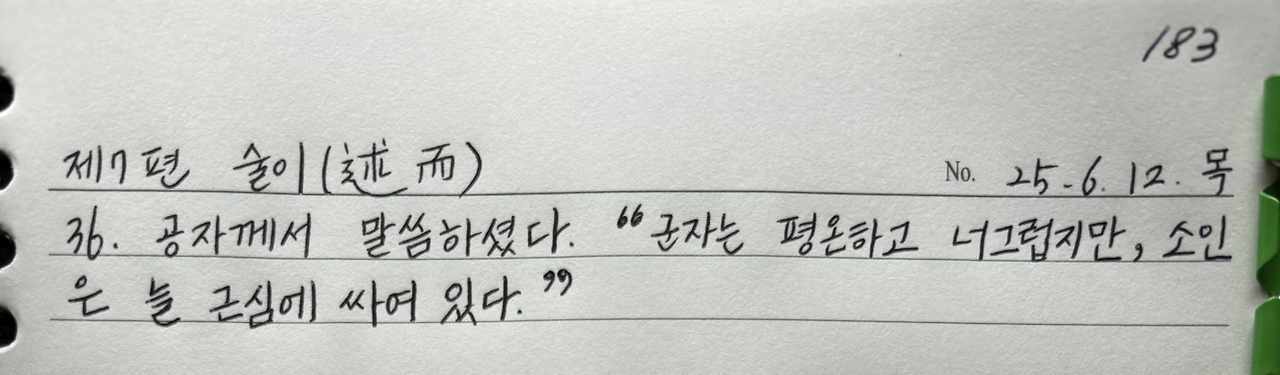 183
제7편 술이(述而) No. 25-6. 12. 목
36. 공자께서 말씀하셨다. “군자는 평온하고 너그럽지만, 소인
은 늘 근심에 싸여 있다.”